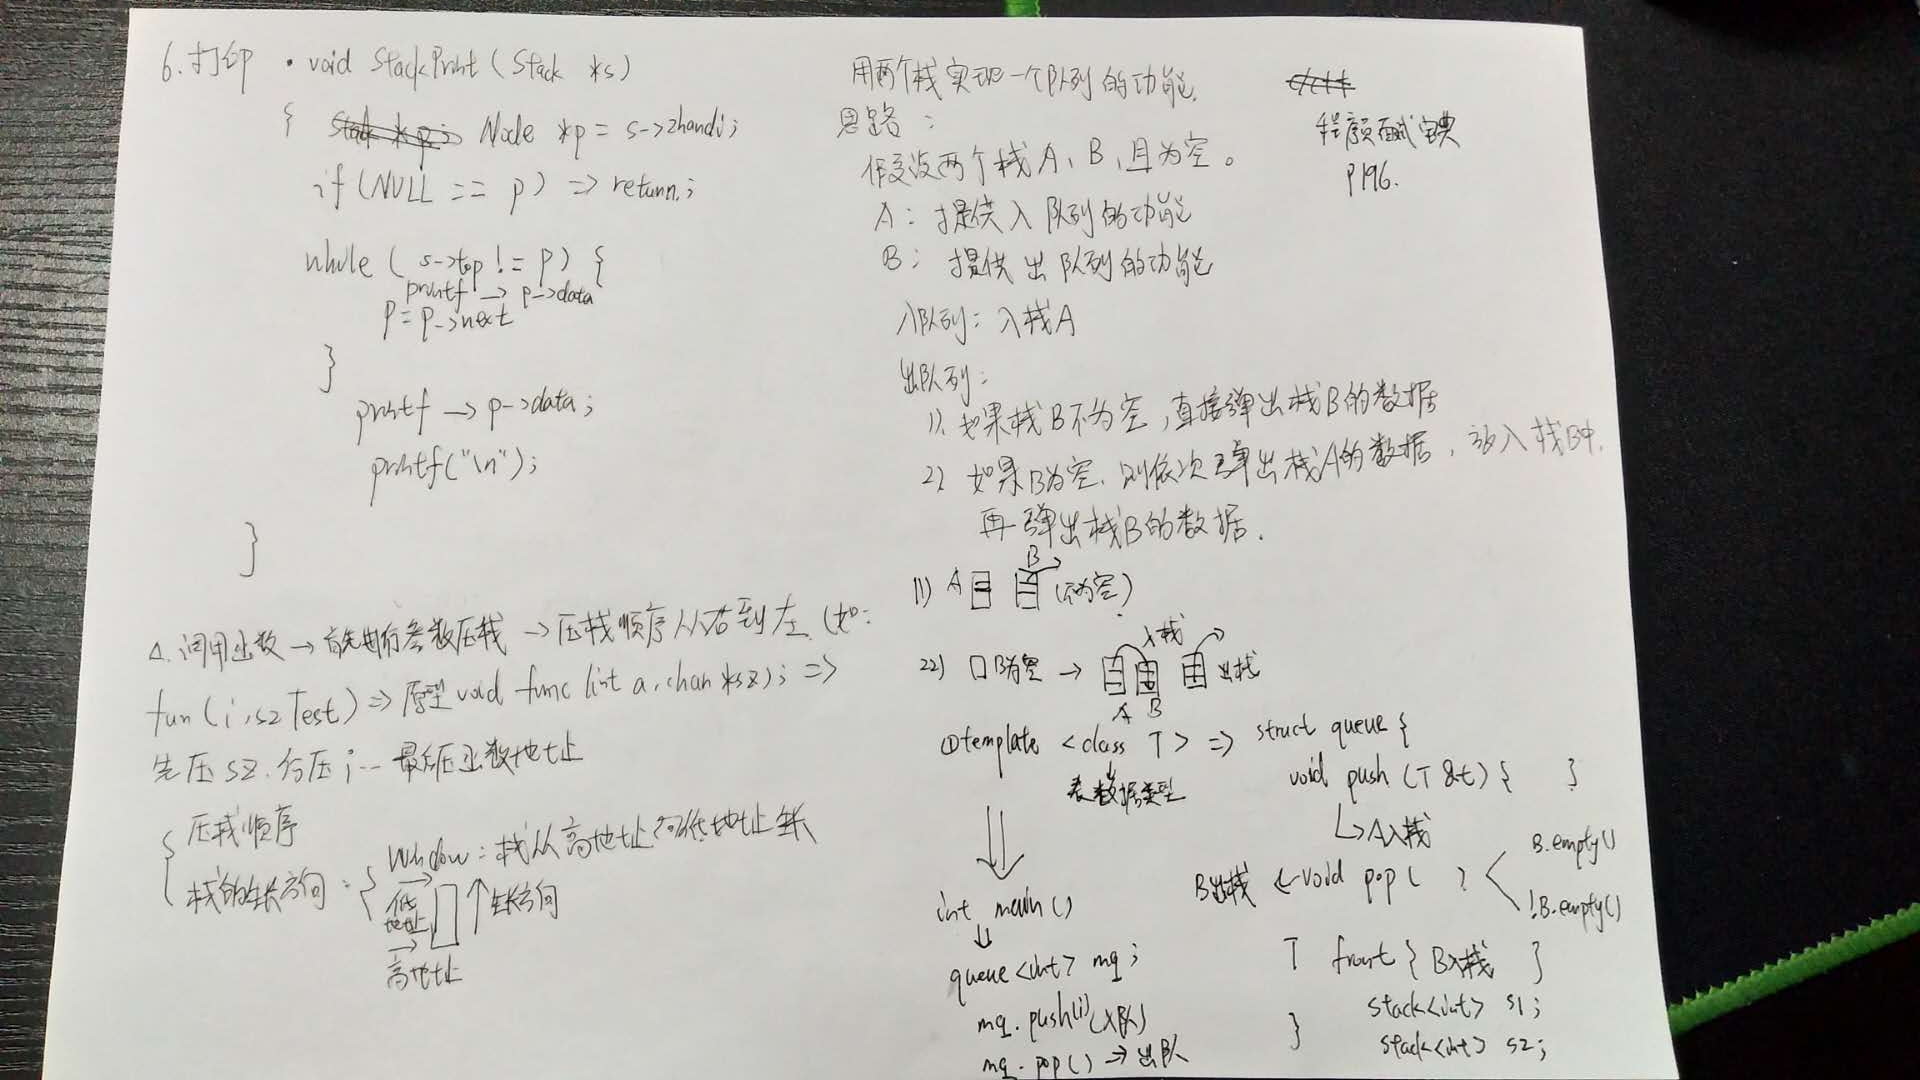 6.打印 · void StackPrint (Stack *s)
{ Node *p = s->zhandi;
if (NULL == p) => return;
while ( s->top != p) {
printf -> p->data
p = p->next
}
printf -> p->data;
printf("\n");
}
△.调用函数 → 首先进行参数压栈 → 压栈顺序从右到左 (如:
fun (i, szTest) => 原型 void func (int a, char *sz); =>
先压 sz. 后压 i … 最后压函数地址
{ 压栈顺序
栈的生长方向 : { Window : 栈从高地址向低地址生长
低地址
↑ 生长方向
高地址
用两个栈实现一个队列的功能.
思路 :
假设两个栈 A、B, 且为空。
A : 提供入队列的功能
B : 提供出队列的功能
入队列: 入栈A
出队列:
1). 如果栈B不为空, 直接弹出栈B的数据
2) 如果B为空, 则依次弹出栈A的数据, 放入栈B中,
再弹出栈B的数据.
B
1)) A (不为空)
入栈
2)) B为空 → 出栈
A B
①template <class T> => struct queue {
表数据类型
void push (T &t) { }
↳A入栈
B出栈 <- void pop ( ) < B.empty()
!B.empty()
int main ()
↓
queue<int> mq ;
mq. push(i) (入队)
mq. pop() → 出队
T front { B入栈 }
stack<int> s1;
stack<int> s2;
}
程序员面试宝典
P196.